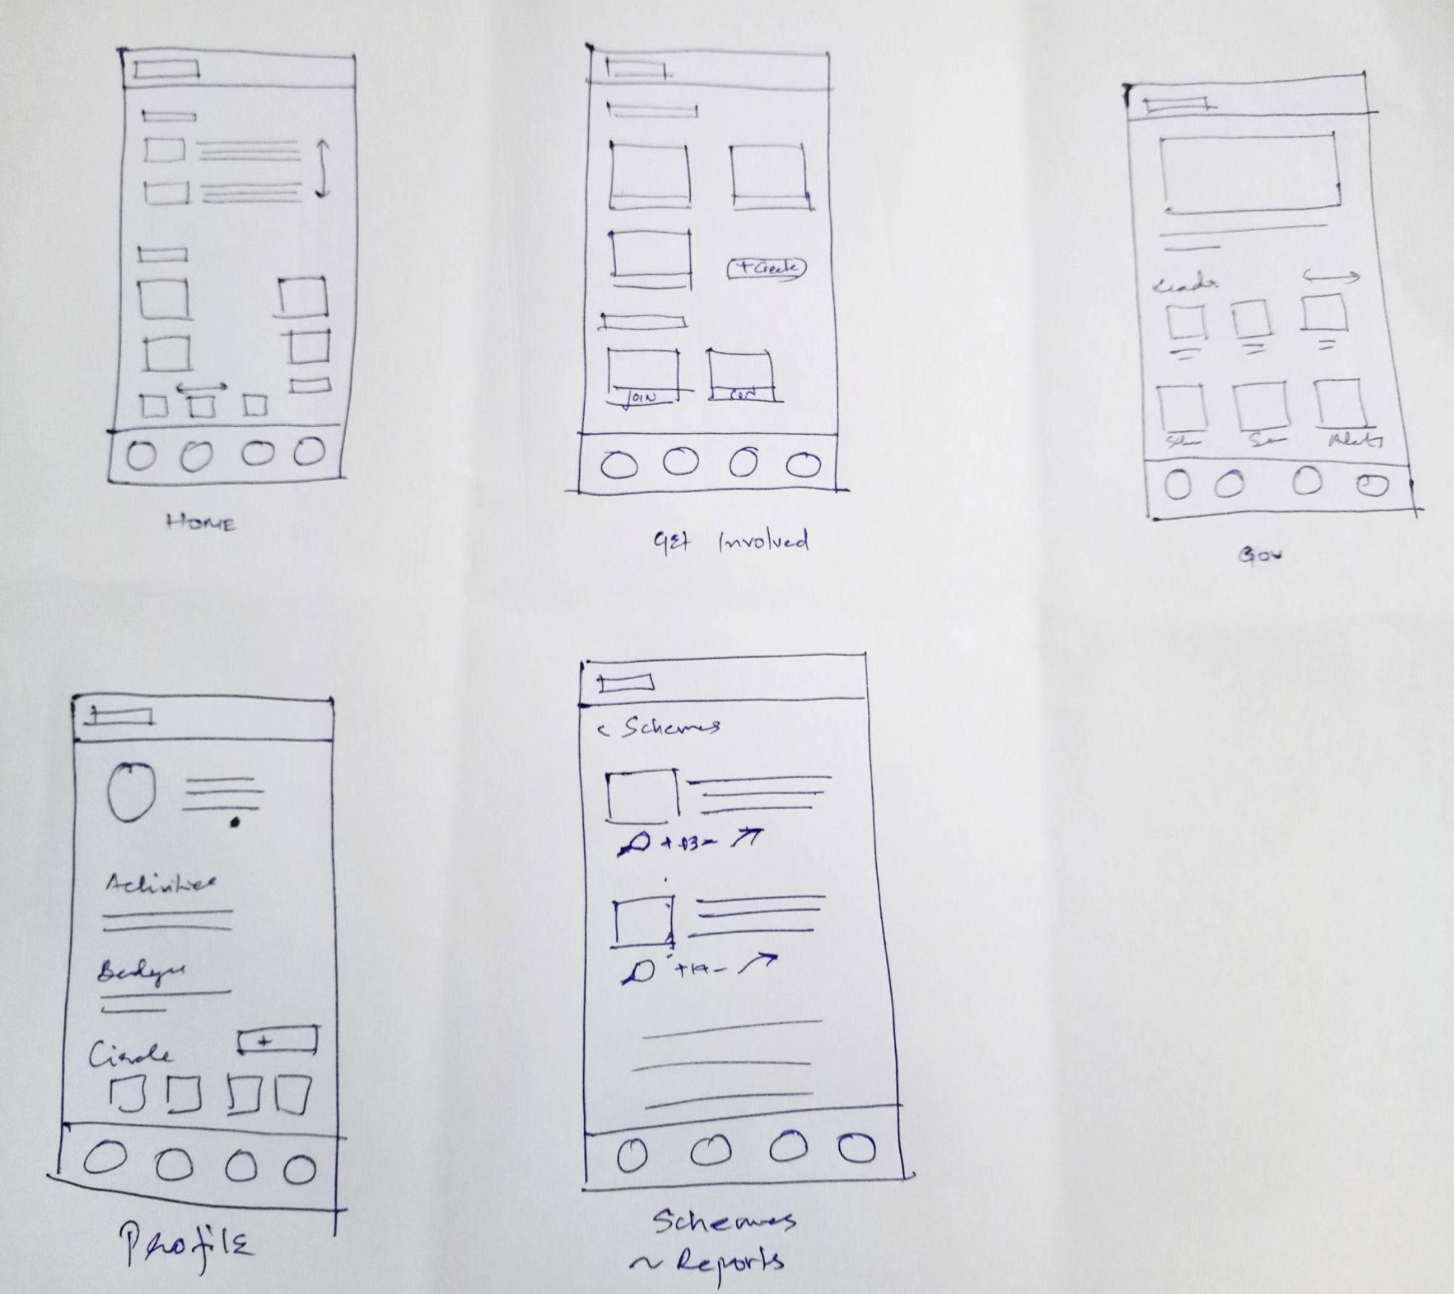 + Create
JOIN
HOME
Get Involved
Leads
Alerts
Gov
Activities
Badges
Circle
+
Profile
< Schemes
Schemes
~ Reports